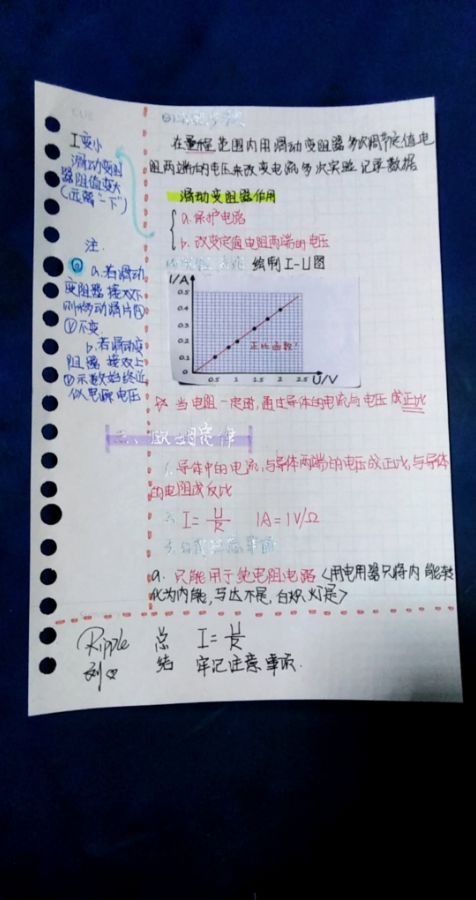 在量程范围内用滑动变阻器多次调节定值电
阻两端的电压来改变电流多次实验记录数据
滑动变阻器作用
a.保护电路
b.改变定值电阻两端的电压
绘制I-U图
I/A
0.5
0.4
0.3
0.2
0.1
0
正比函数?
0.5 1 1.5 2 2.5 U/V
当电阻一定时,通过导体的电流与电压成正比
二、欧姆定律
1.导体中的电流,与导体两端的电压成正比,与导体
的电阻成反比
2. I=U/R 1A=1V/Ω
3.
a.只能用于纯电阻电路(用电用器只将内能转
化为内能,马达不是,白炽灯是>
I变小
滑动变阻
器阻值变大
(远离"下")
注.
a.若滑动
变阻器接水下
则移动滑片Ⓐ
Ⓥ不变
b.若滑动变
阻器接水上
Ⓥ示数始终近
似电源电压
Ripple
总
结
I=U/R
牢记注意事项.